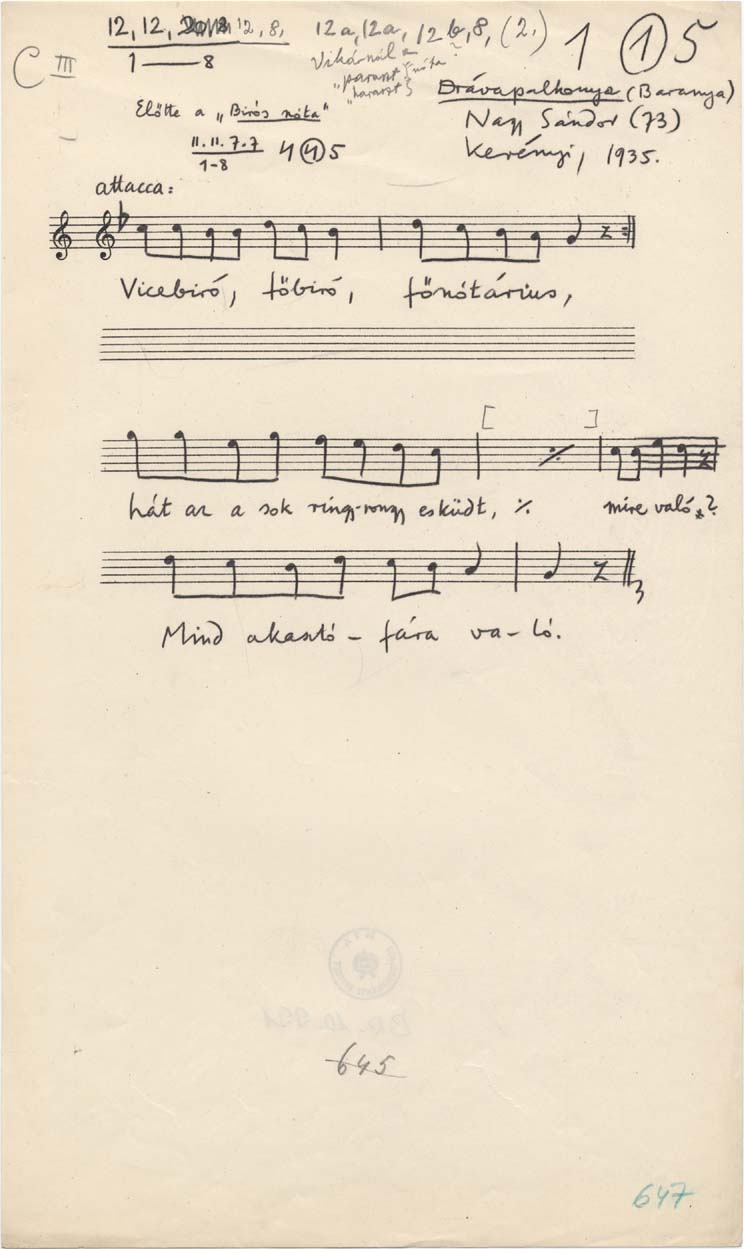 12, 12, 12, 8, 12a, 12a, 12b, 8, (2.) 1 ① 5
C III 1 — 8 Vikárnál a ?
"paraszt nóta
Drávapalkonya (Baranya)
Előtte a „Birós nóta" Nagy Sándor (73)
11. 11. 7. 7 4 ④ 5 Kerényi, 1935.
1-8
attacca:
Vicebiró, főbiró, főnótárius,
[ ]
hát az a sok ringy-rongy esküdt, ·/. mire való?
3
Mind akasztó - fára va - ló.
645
647.